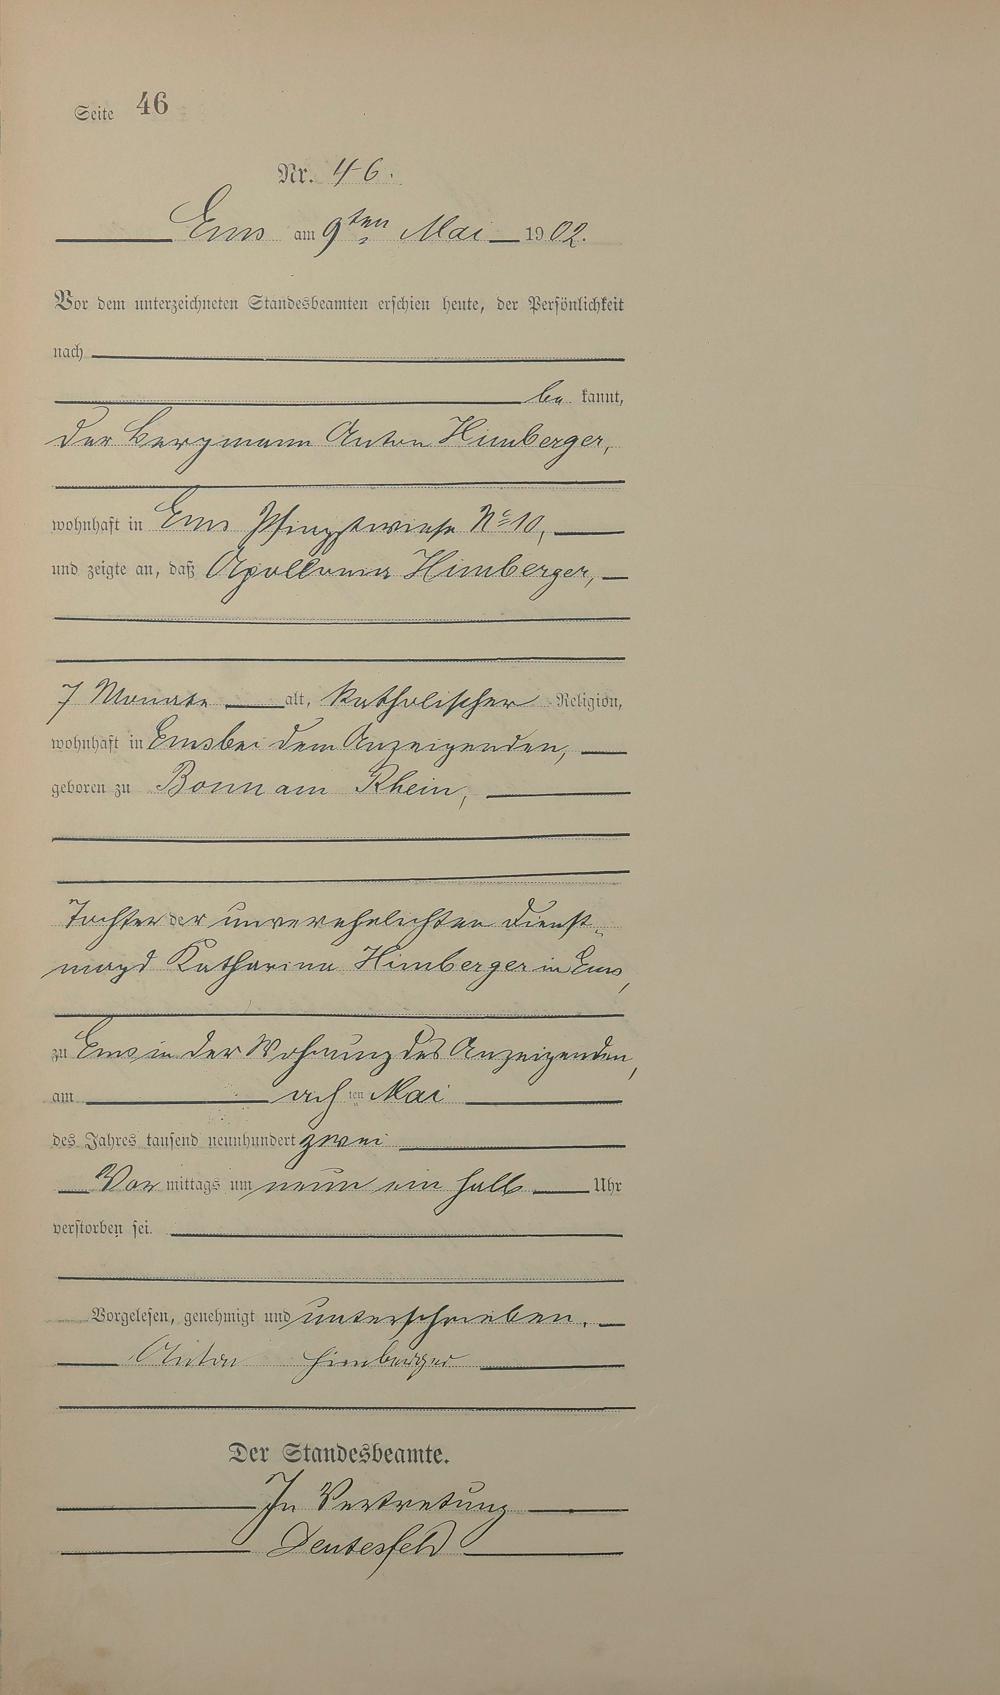 Seite 46
Nr. 46.
Ems am 9ten Mai 1902.
Vor dem unterzeichneten Standesbeamten erschien heute, der Persönlichkeit
nach
be kannt,
der Bergmann Anton Himberger,
wohnhaft in Ems Pfingstwiese No 10,
und zeigte an, daß Apollonia Himberger,
7 Monate alt, katholischer Religion,
wohnhaft in Ems bei dem Anzeigenden,
geboren zu Bonn am Rhein,
Tochter der unverehelichten Dienst-
magd Katharina Himberger in Ems,
zu Ems in der Wohnung des Anzeigenden,
am achten Mai
des Jahres tausend neunhundert zwei
Vor mittags um neun ein halb Uhr
verstorben sei.
Vorgelesen, genehmigt und unterschrieben.
Anton Himberger
Der Standesbeamte.
In Vertretung
Deutesfeld